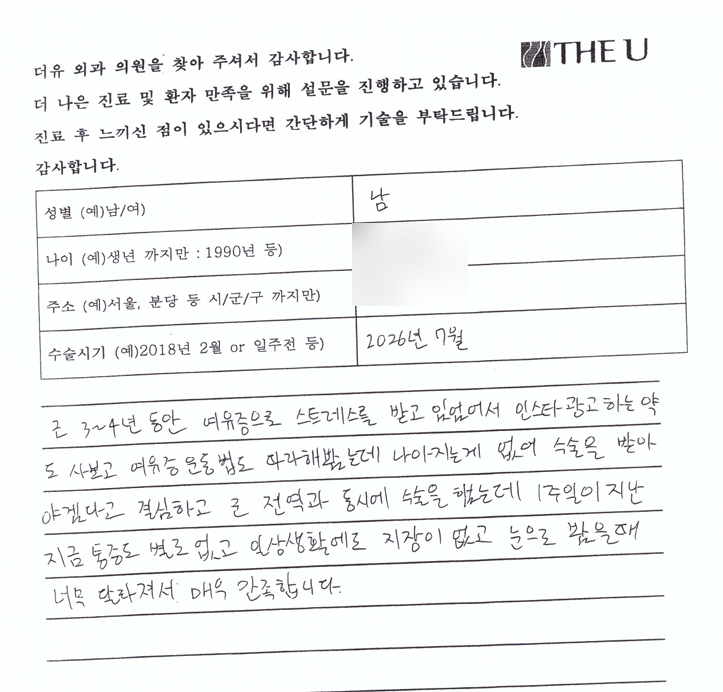 더유 외과 의원을 찾아 주셔서 감사합니다.
THE U
더 나은 진료 및 환자 만족을 위해 설문을 진행하고 있습니다.
진료 후 느끼신 점이 있으시다면 간단하게 기술을 부탁드립니다.
감사합니다.
성별 (예)남/여) 남
나이 (예)생년 까지만 : 1990년 등)
주소 (예)서울, 분당 등 시/군/구 까지만)
수술시기 (예)2018년 2월 or 일주전 등) 2026년 7월
근 3~4년 동안 여유증으로 스트레스를 받고 있었어서 인스타 광고하는 약
도 사보고 여유증 운동법도 따라해봤는데 나아지는게 없어 수술을 받아
야겠다고 결심하고 군 전역과 동시에 수술을 했는데 1주일이 지난
지금 통증도 별로 없고 일상생활에도 지장이 없고 눈으로 봤을때
너무 달라져서 매우 만족합니다.